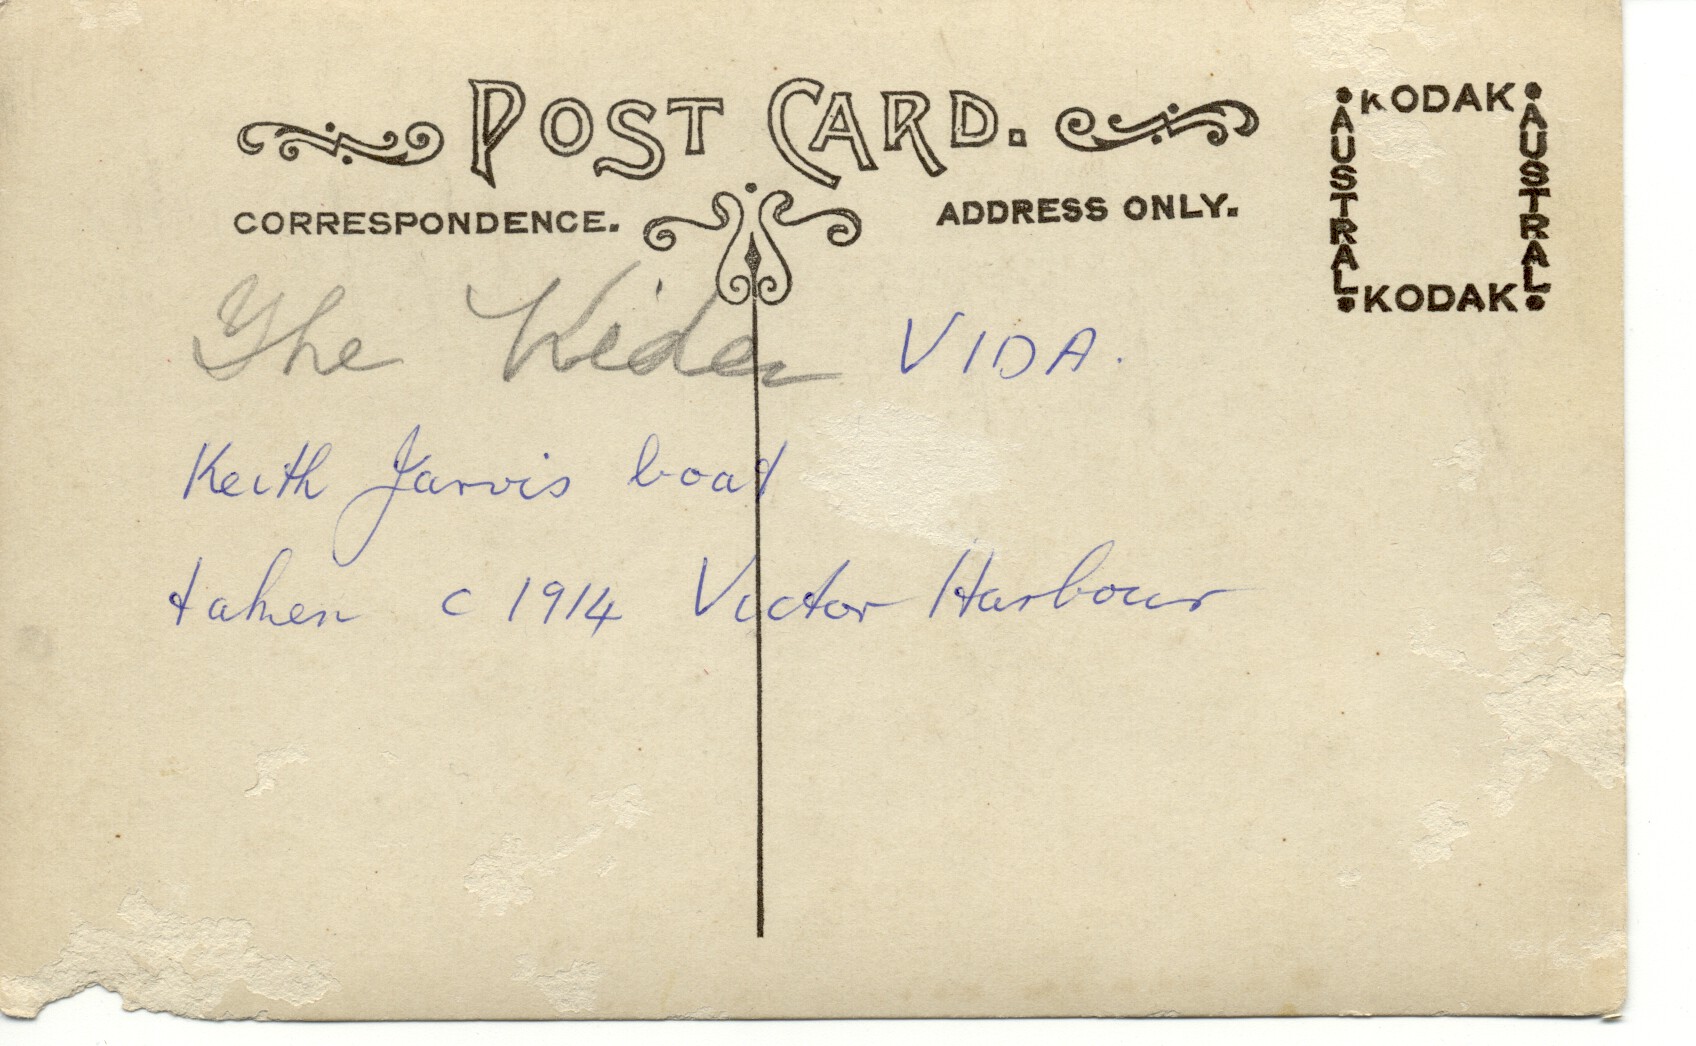 POST CARD.
CORRESPONDENCE.
ADDRESS ONLY.
KODAK
AUSTRAL
AUSTRAL
KODAK
The Vida VIDA.
Keith Jarvis boat
taken c 1914 Victor Harbour